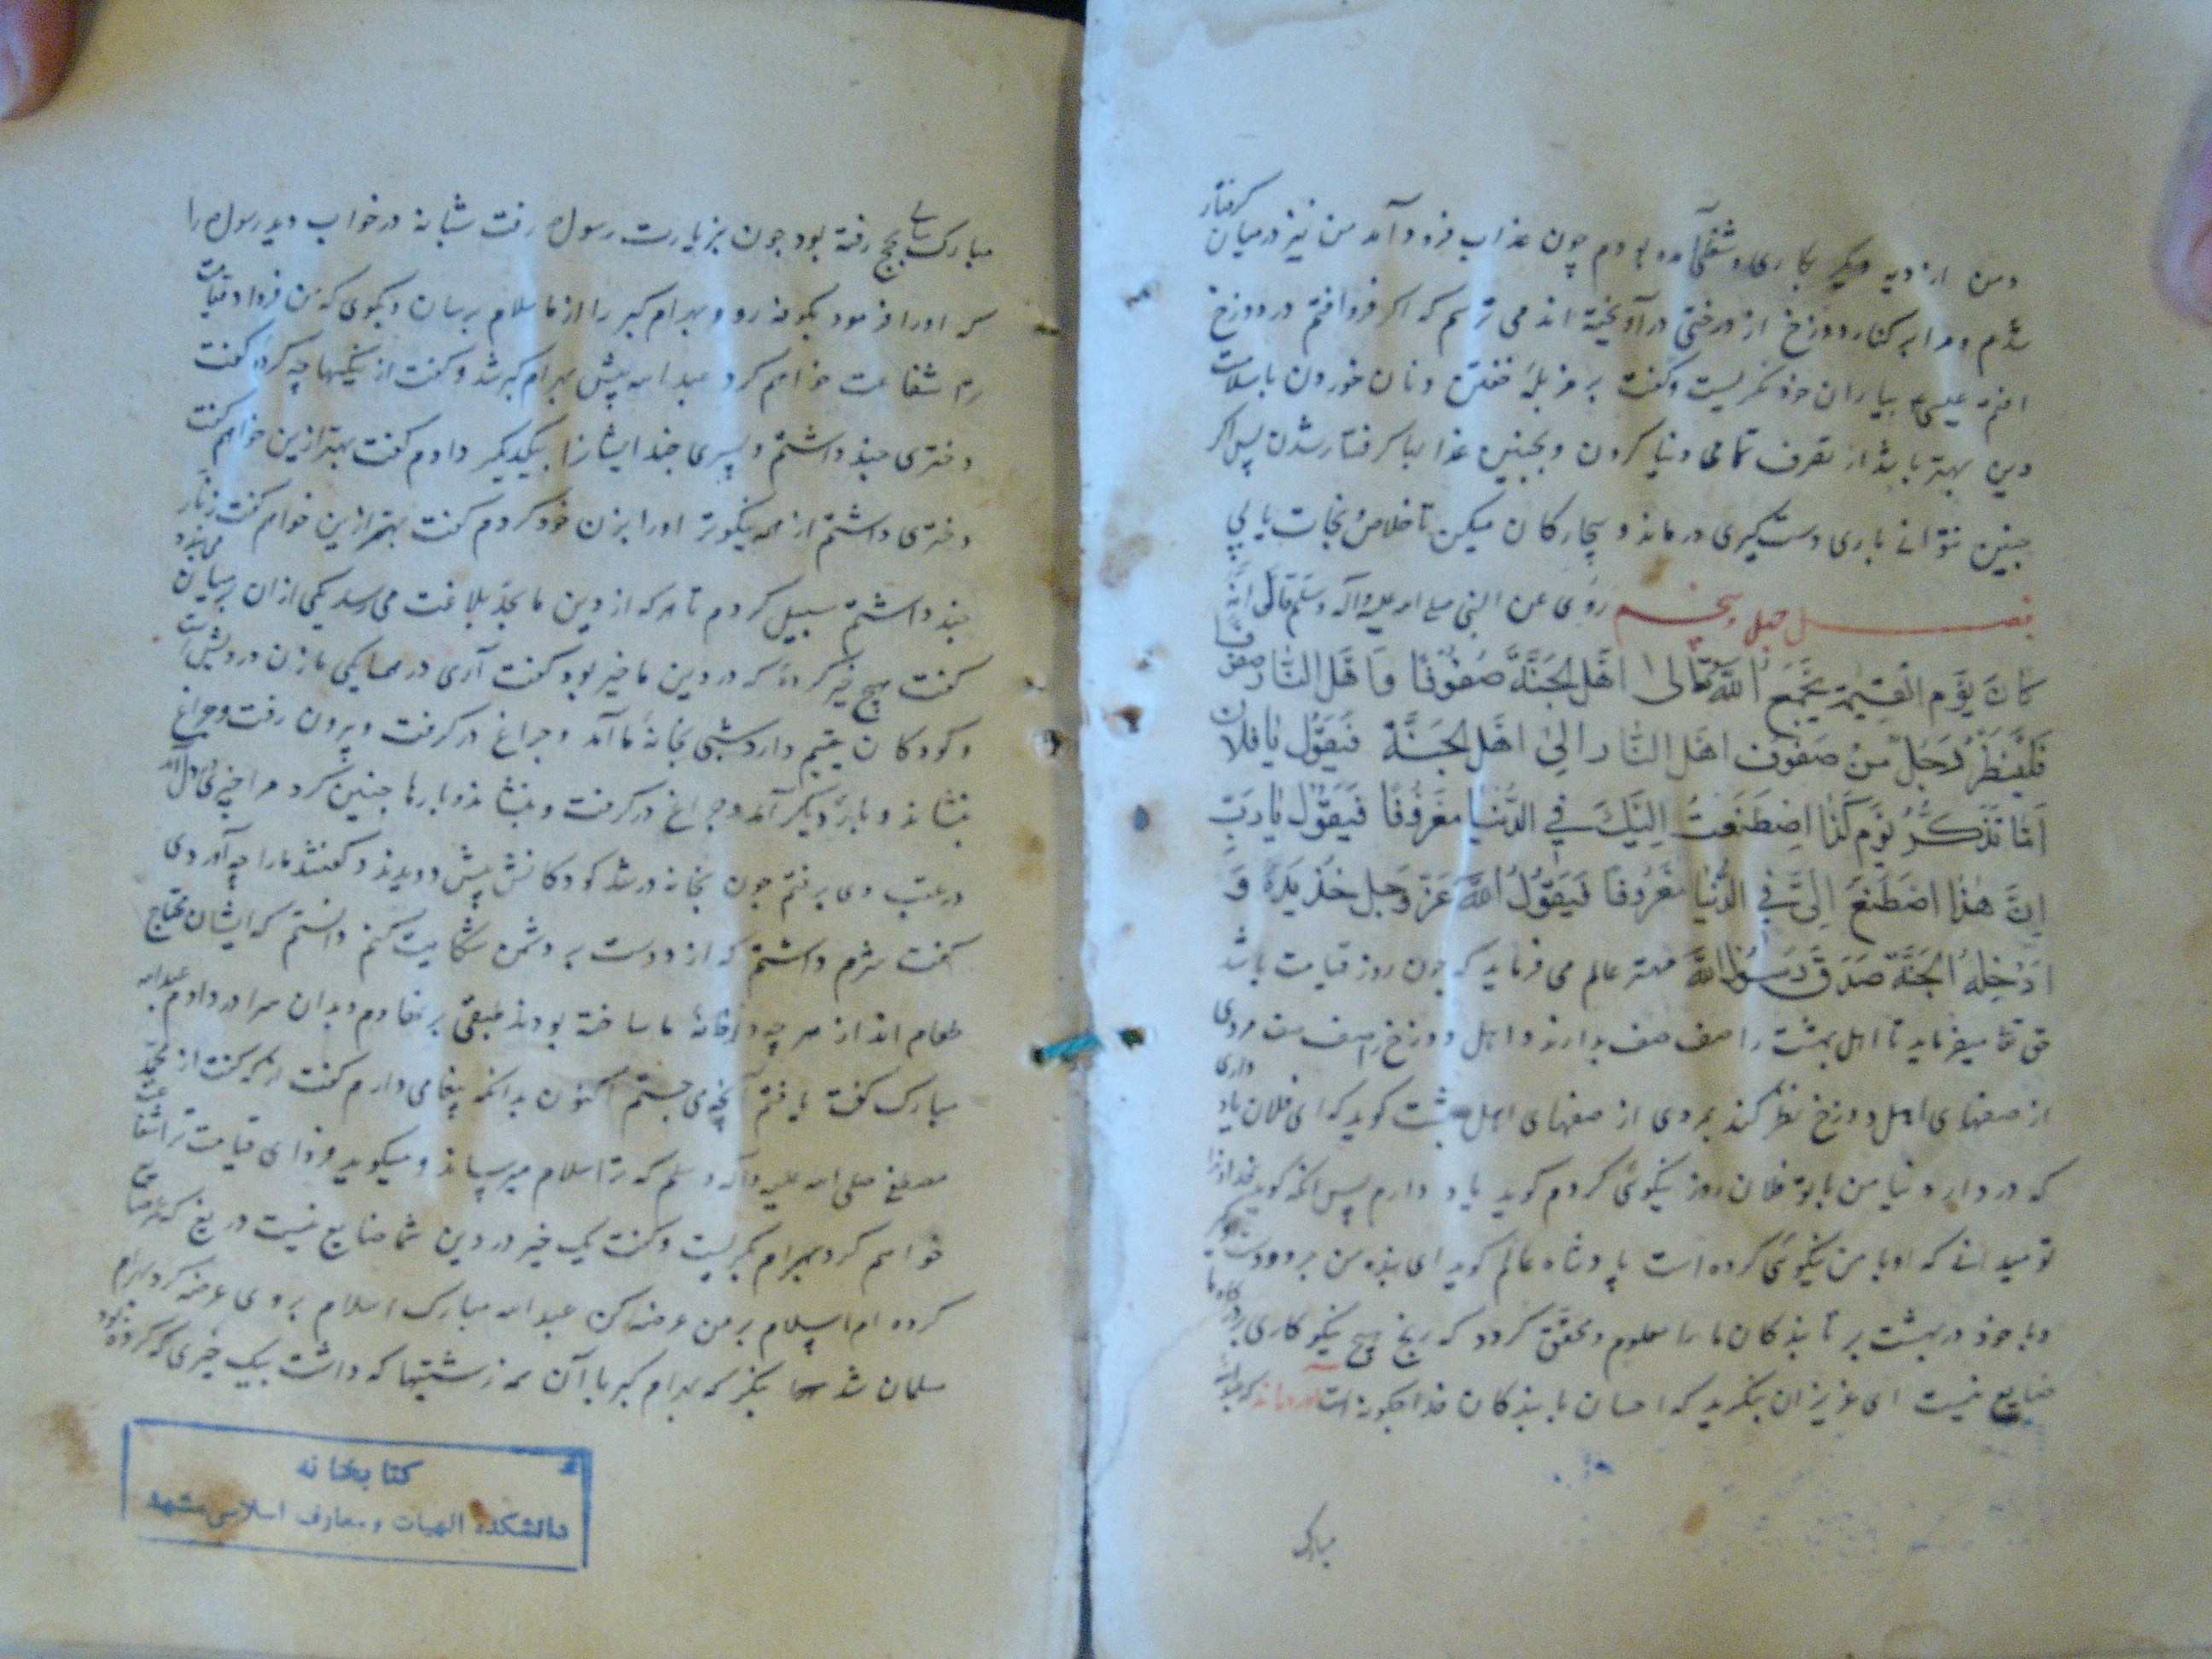 ومن از دیه دیگر بکاری و شغلی آمده بودم چون عذاب فرود آمد من نیز درمیان گرفتار
شدم و مرا بر کنار دوزخ از درختی در آویخته اند می ترسم که اکر فرو افتم در دوزخ
افتم عیسی بیاران خود نکریست وکفت بر مزبلۀ خفتن و نان خوردن با سلامت
دین بهتر باشد از تصرف تمامی دنیا کردن و بچنین عذابها کرفتار شدن پس اکر
چنین نتوانی باری دست کیری درمانده و بیچارکان میکن تا خلاص و نجات یابی
فصل چهل و پنجم روی عن النبی صلی الله علیه وآله وسلم قال انه
کان یوم القیمة یجمع الله تعالی اهل الجنة صفوفا واهل النار صفوفا
فلینظر رجل من صفوف اهل النار الی اهل الجنة فیقول یا فلان
اما تذکر یوم کذا اصطنعت الیک فی الدنیا معروفا فیقول یا رب
ان هذا اصطنع الی فی الدنیا معروفا فیقول الله عز وجل خذ یده و
ادخله الجنة صدق رسول الله مهتر عالم می فرماید که چون روز قیامت باشد
حق تعا میفرماید تا اهل بهشت را صف صف بدارند و اهل دوزخ را صف صف مردی
از صفهای اهل دوزخ نظر کند بمردی از صفهای اهل بهشت کوید که ای فلان یاد داری
که در دار دنیا من با تو فلان روز نیکوئی کردم کوید یاد دارم پس انکه کوید خداوندا
تو میدانی که او با من نیکوئی کرده است پادشاه عالم کوید ای بنده من برو و دست او کیر
وبا خود در بهشت بر تا بندکان ما را معلوم و محقق کردد که رنج هیچ نیکوکاری بر درکاه ما
ضایع نیست ای عزیزان بنکرید که احسان با بندکان خدا چکونه است آورده‌اند که عبدالله
مبارک
مبارک بحج رفته بود چون بزیارت رسول رفت شبانه در خواب دید رسول را
که او را فرمود بکوفه رو و بهرام کبر را از ما سلام برسان و بکوی که من فردا قیامت
ترا شفاعت خواهم کرد عبد الله پیش بهرام کبر شد وکفت از نیکیها چه کردۀ کفت
دختری چند داشتم و پسری چند ایشانرا بیکدیکر دادم کفت بهتر ازین خواهم کفت
دختری داشتم از همه نیکوتر اورا بزن خود کردم کفت بهتر ازین خواهم کفت زنار
چند داشتم سبیل کردم تا هرکه از دین ما بحد بلاغت می رسد یکی ازان برمیان می بندد
کفت هیچ خیر کردۀ که در دین ما خیر بود کفت آری در همسایکی ما زن درویش است
و کودکان یتیم دارد شبی بخانۀ ما آمد و چراغ در کرفت و بیرون رفت وچراغ
بنشاند و بار دیکر آمد و چراغ در کرفت و بنشاند و بارها چنین کرد مرا چیزی در دل آمد
در عقب وی برفتم چون بخانه در شد کودکانش پیش دویدند و کفتند ما را چه آوردی
کفت شرم داشتم که از دوست بر دشمن شکایت کنم دانستم که ایشان محتاج
طعام اند از هر چه در خانۀ ما ساخته بودند طبقی بر نهادم و بدان سرا در دادم عبد الله
مبارک کفت یافتم آنچه می جستم اکنون بدانکه پیغامی دارم کفت از که کفت از محمد
مصطفی صلی الله علیه وآله وسلم که ترا سلام میرساند و میکوید فردای قیامت ترا شفاعت
خواهم کرد بهرام بکریست وکفت یک خیر در دین شما ضایع نیست دریغ که عمر ضایع
کرده ام اسلام بر من عرضه کن عبد الله مبارک اسلام بروی عرضه کرد بهرام
مسلمان شد بنکر که بهرام کبر با آن همه زشتیها که داشت بیک خیری که کرده بود
کتابخانه
دانشکده الهیات و معارف اسلامی مشهد